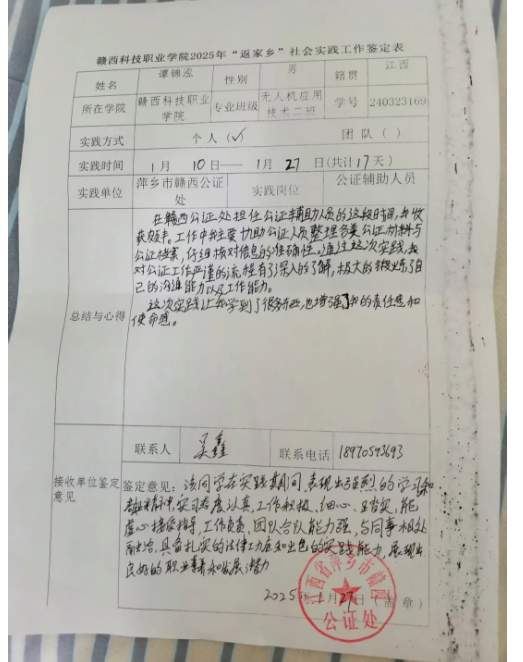 赣西科技职业学院2025年“返家乡”社会实践工作鉴定表
姓名 谭锦泓 性别 男 籍贯 江西
所在学院 赣西科技职业学院 专业班级 无人机应用技术二班 学号 240323169
实践方式 个人(✓) 团队( )
实践时间 1月10日——1月27日(共计17天)
实践单位 萍乡市赣西公证处 实践岗位 公证辅助人员
总结与心得
在赣西公证处担任公证辅助人员的这段时间,我收
获颇丰。工作中我主要协助公证人员整理各类公证材料与
公证档案,仔细核对信息的准确性。通过这次实践,我
对公证工作严谨的流程有了深入的了解,极大的锻炼了自
己的沟通能力以及工作能力。
这次实践让我学到了很多东西,也增强了我的责任感和
使命感。
接收单位鉴定意见
联系人 吴鑫 联系电话 18970593693
鉴定意见:该同学在实践期间,表现出强烈的学习和
精神,实习态度认真,工作积极、细心、踏实,能
虚心接受指导,工作负责,团队合队能力强,与同事相处
融洽,具备扎实的法律功底和出色的实践能力,展现出
良好的职业素养和发展潜力
2025年1月27日(盖章)
江西省萍乡市赣西
公证处